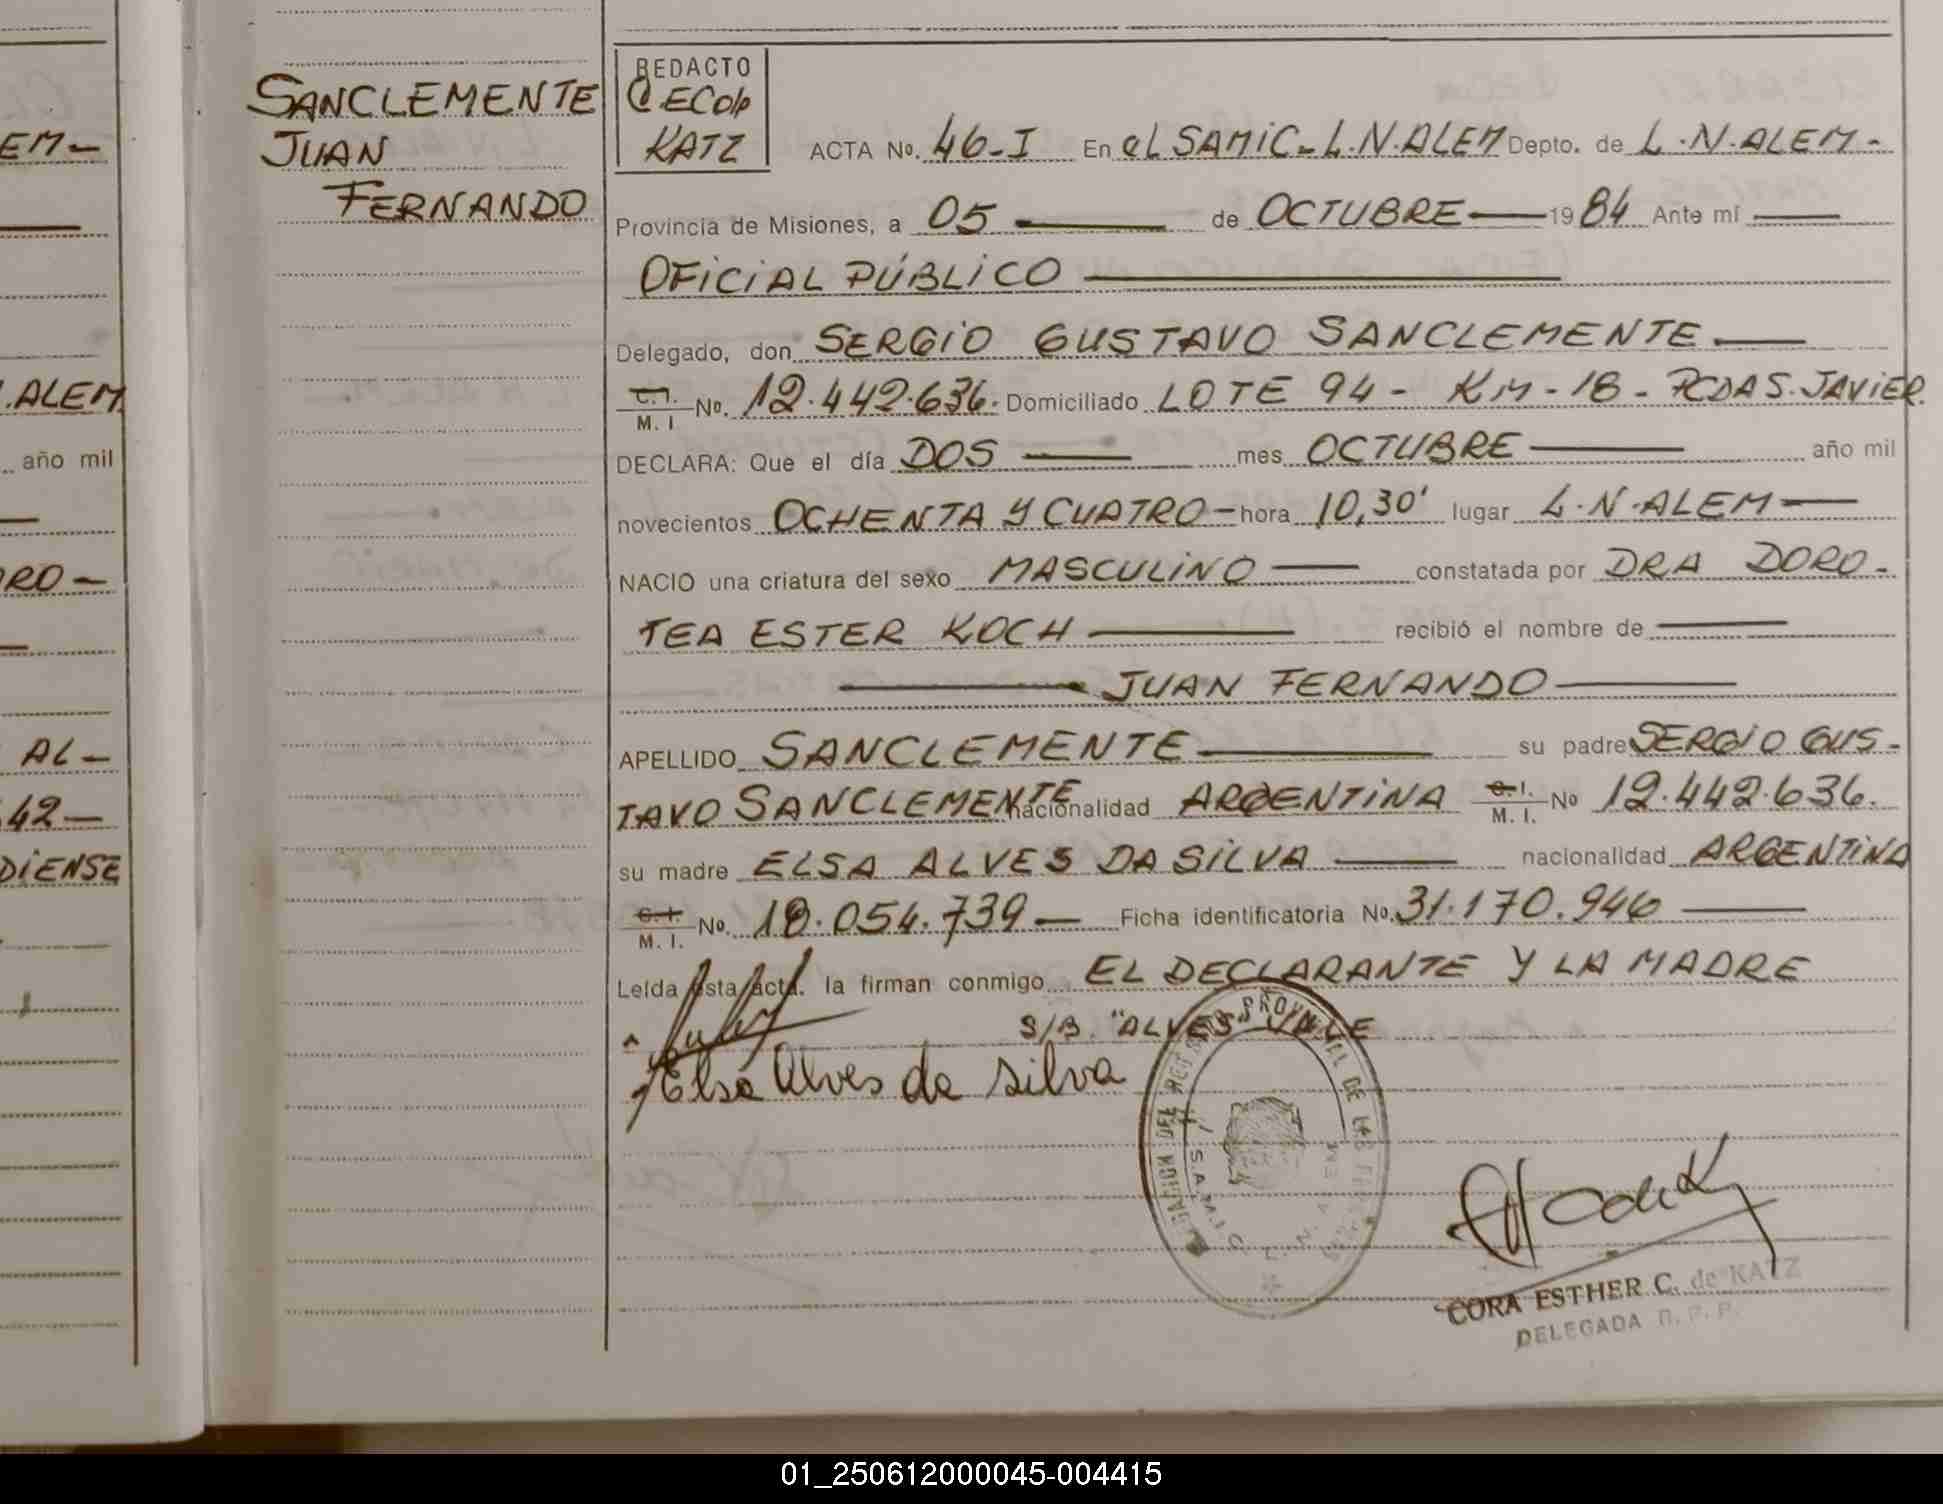 EM-
.ALEM
año mil
RO-
AL-
42-
DIENSE
SANCLEMENTE
JUAN
FERNANDO
REDACTO
KATZ
ACTA No. 46-I En el SAMIC-L.N.ALEM Depto. de L.N.ALEM-
Provincia de Misiones, a 05 de OCTUBRE 1984 Ante mí
OFICIAL PÚBLICO
Delegado, don SERGIO GUSTAVO SANCLEMENTE
C.I.
M. I No. 12.442.636. Domiciliado LOTE 94 - KM - 18 - PCDA S. JAVIER.
DECLARA: Que el día DOS mes OCTUBRE año mil
novecientos OCHENTA Y CUATRO - hora 10,30' lugar L.N.ALEM
NACIO una criatura del sexo MASCULINO constatada por DRA DORO-
TEA ESTER KOCH recibió el nombre de
JUAN FERNANDO
APELLIDO SANCLEMENTE su padre SERGIO GUS-
TAVO SANCLEMENTE nacionalidad ARGENTINA C.I. M. I. No 12.442.636.
su madre ELSA ALVES DA SILVA nacionalidad ARGENTINA
C.I.
M. I. No. 18.054.739 - Ficha identificatoria No. 31.170.946
Leída esta acta. la firman conmigo EL DECLARANTE Y LA MADRE
S/B. "ALVES" VALE
Elsa Alves da silva
DELEGACION DEL REG PROVINCIAL DE LAS
S.A.M.I.C. L. N. ALEM
CORA ESTHER C. de KATZ
DELEGADA R. P. P.
01_250612000045-004415